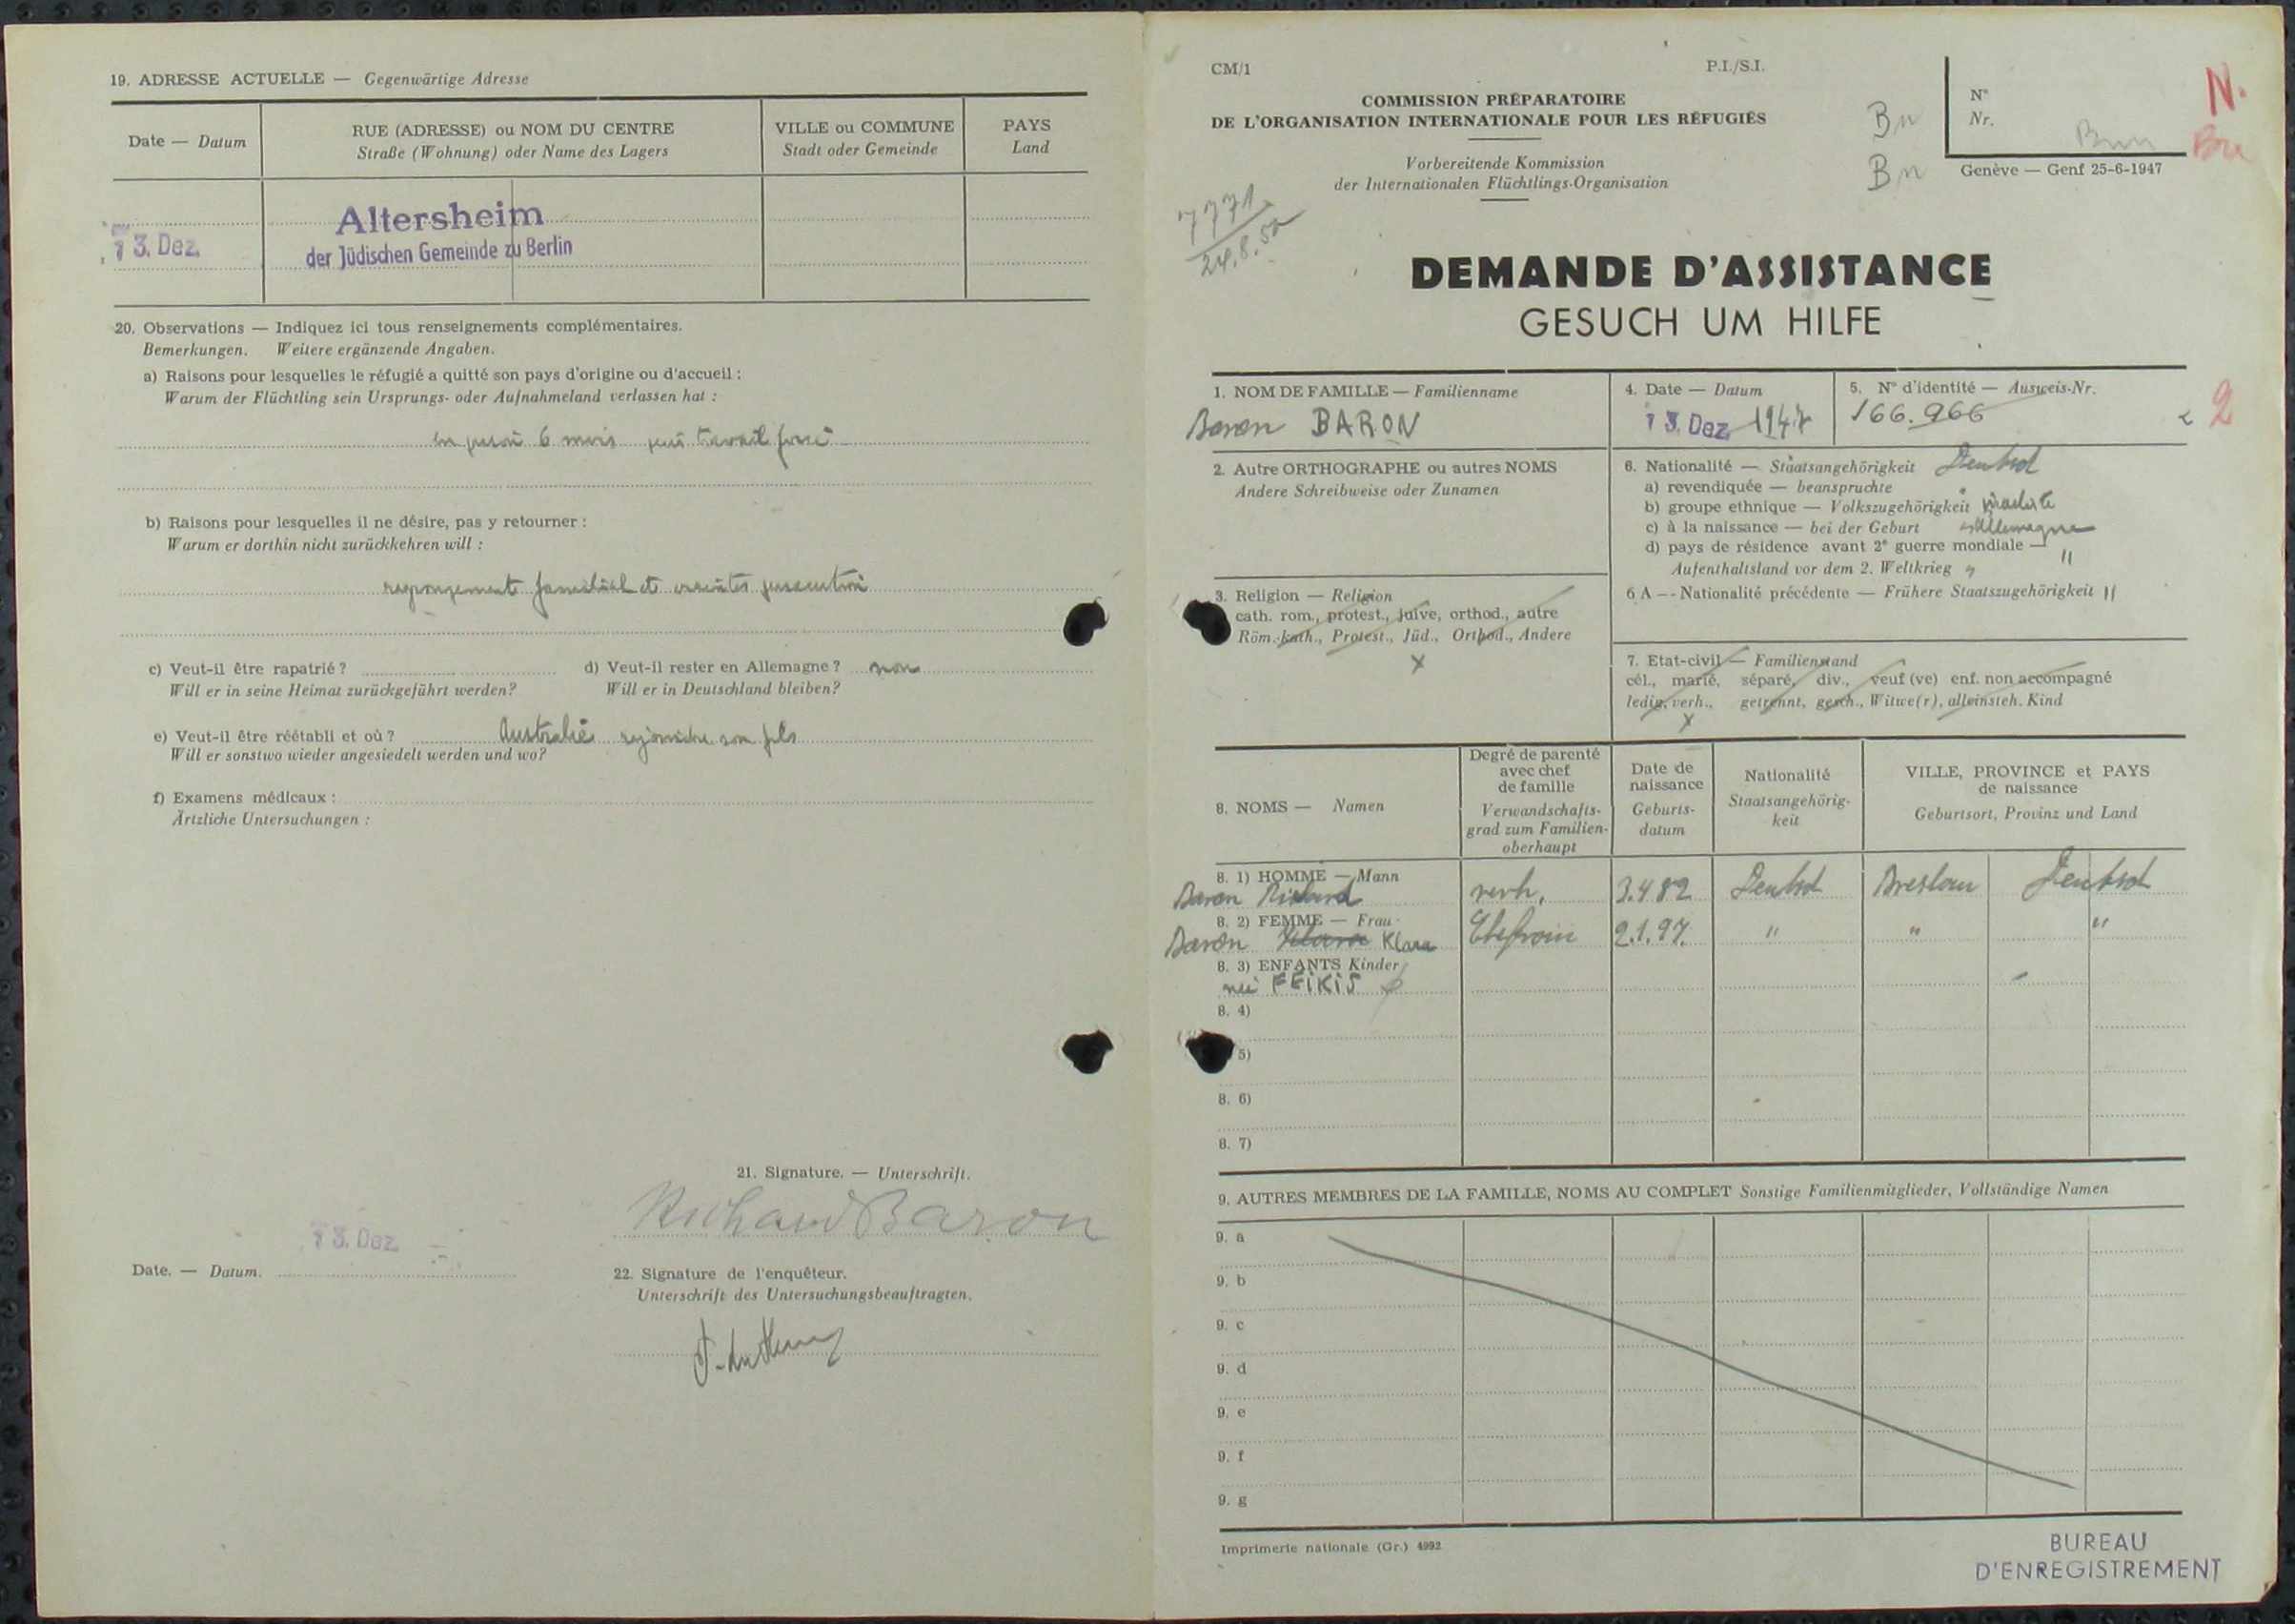 19. ADRESSE ACTUELLE — Gegenwärtige Adresse
Date — Datum
RUE (ADRESSE) ou NOM DU CENTRE
Straße (Wohnung) oder Name des Lagers
VILLE ou COMMUNE
Stadt oder Gemeinde
PAYS
Land
13. Dez.
Altersheim
der Jüdischen Gemeinde zu Berlin
20. Observations — Indiquez ici tous renseignements complémentaires.
Bemerkungen. Weitere ergänzende Angaben.
a) Raisons pour lesquelles le réfugié a quitté son pays d'origine ou d'accueil :
Warum der Flüchtling sein Ursprungs- oder Aufnahmeland verlassen hat :
en prison 6 mois puis travail forcé
b) Raisons pour lesquelles il ne désire, pas y retourner :
Warum er dorthin nicht zurückkehren will :
regroupement familial et persecution
c) Veut-il être rapatrié ?
Will er in seine Heimat zurückgeführt werden?
d) Veut-il rester en Allemagne ? non
Will er in Deutschland bleiben?
e) Veut-il être réétabli et où ? Australie rejoindre son fils
Will er sonstwo wieder angesiedelt werden und wo?
f) Examens médicaux :
Ärtzliche Untersuchungen :
21. Signature. — Unterschrift.
Richard Baron
13. Dez.
Date. — Datum.
22. Signature de l'enquêteur.
Unterschrift des Untersuchungsbeauftragten.
CM/1
P.I./S.I.
COMMISSION PRÉPARATOIRE
DE L'ORGANISATION INTERNATIONALE POUR LES RÉFUGIÉS
Vorbereitende Kommission
der Internationalen Flüchtlings-Organisation
Bn
Bn
N°
Nr.
N.
Genève — Genf 25-6-1947
7771
24.8.50
DEMANDE D'ASSISTANCE
GESUCH UM HILFE
1. NOM DE FAMILLE — Familienname
Baron BARON
4. Date — Datum
13. Dez. 1947
5. N° d'identité — Ausweis-Nr.
166.966
2
2. Autre ORTHOGRAPHE ou autres NOMS
Andere Schreibweise oder Zunamen
6. Nationalité — Staatsangehörigkeit Deutsch
a) revendiquée — beanspruchte
b) groupe ethnique — Volkszugehörigkeit israélite
c) à la naissance — bei der Geburt Allemagne
d) pays de résidence avant 2e guerre mondiale — "
Aufenthaltsland vor dem 2. Weltkrieg
6 A -- Nationalité précédente — Frühere Staatszugehörigkeit "
3. Religion — Religion
cath. rom., protest., juive, orthod., autre
Röm.-kath., Protest., Jüd., Orthod., Andere
x
7. Etat-civil — Familienstand
cél., marié, séparé, div., veuf (ve) enf. non accompagné
ledig, verh., getrennt, gesch., Witwe(r), alleinsteh. Kind
x
8. NOMS — Namen
Degré de parenté
avec chef
de famille
Verwandschafts-
grad zum Familien-
oberhaupt
Date de
naissance
Geburts-
datum
Nationalité
Staatsangehörig-
keit
VILLE, PROVINCE et PAYS
de naissance
Geburtsort, Provinz und Land
8. 1) HOMME — Mann
Baron Richard verh. 3.4.82 Deutsch Breslau Deutsch
8. 2) FEMME — Frau
Baron Klara Klara Ehefrau 2.1.97. " " "
8. 3) ENFANTS Kinder
née FEIKIS
8. 4)
5)
8. 6)
8. 7)
9. AUTRES MEMBRES DE LA FAMILLE, NOMS AU COMPLET Sonstige Familienmitglieder, Vollständige Namen
9. a
9. b
9. c
9. d
9. e
9. f
9. g
Imprimerie nationale (Gr.) 4992
BUREAU
D'ENREGISTREMENT